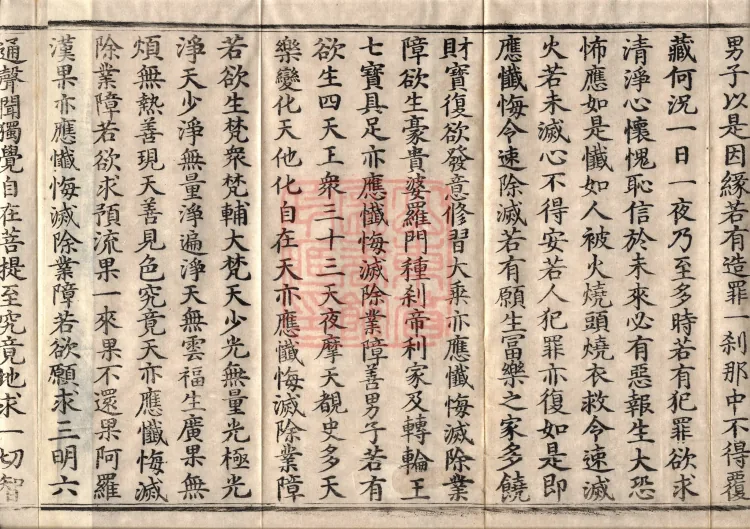 男子以是因緣若有造罪一刹那中不得覆
藏何況一日一夜乃至多時若有犯罪欲求
清淨心懷愧恥信於未來必有惡報生大恐
怖應如是懺如人被火燒頭燒衣救令速滅
火若未滅心不得安若人犯罪亦復如是即
應懺悔令速除滅若有願生冨樂之家多饒
財寶復欲發意修習大乘亦應懺悔滅除業
障欲生豪貴婆羅門種刹帝利家及轉輪王
七寶具足亦應懺悔滅除業障善男子若有
欲生四天王衆三十三天夜摩天覩史多天
樂變化天他化自在天亦應懺悔滅除業障
若欲生梵衆梵輔大梵天少光無量光極光
淨天少淨無量淨遍淨天無雲福生廣果無
煩無熱善現天善見色究竟天亦應懺悔滅
除業障若欲求預流果一來果不還果阿羅
漢果亦應懺悔滅除業障若欲願求三明六
通聲聞獨覺自在菩提至究竟地求一切智